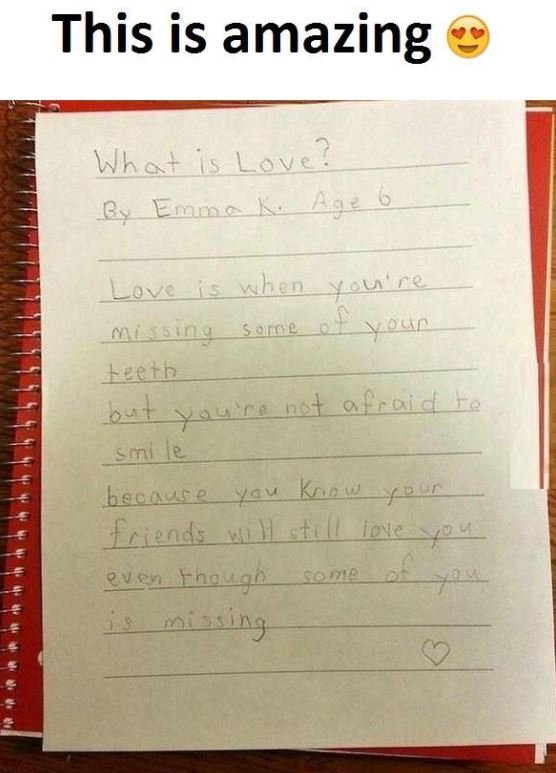 This is amazing 😍
What is Love?
By Emma K. Age 6
Love is when you're
missing some of your
teeth
but you're not afraid to
smile
because you know your
friends will still love you
even though some of you
is missing
♡